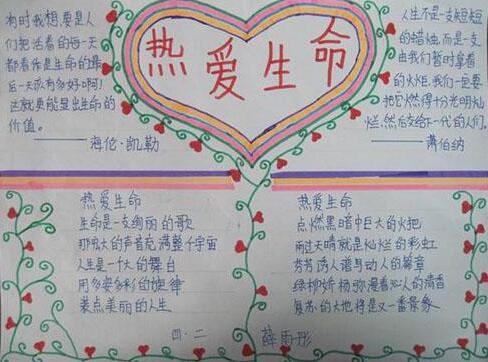 有时我想,要是人
们把活着的每一天
都看作是生命的最
后一天该有多好啊!
这就更能显出生命的
价值。
——海伦·凯勒
热爱生命
人生不是一支短短
的蜡烛,而是一支
由我们暂时拿着
的火炬,我们一定要
把它燃得十分光明灿
烂,然后交给下一代的人们。
——萧伯纳
热爱生命
生命是一支绚丽的歌
那宏大的声音充满整个宇宙
人生是一个大的舞台
用多姿多彩的旋律
装点美丽的人生
热爱生命
点燃黑暗中巨大的火把
雨过天晴就是灿烂的彩虹
芬芳诱人谱与动人的篇章
绿柳娇杨弥漫着沁人的清香
复苏的大地将是又一番景象
四·二
薛雨彤